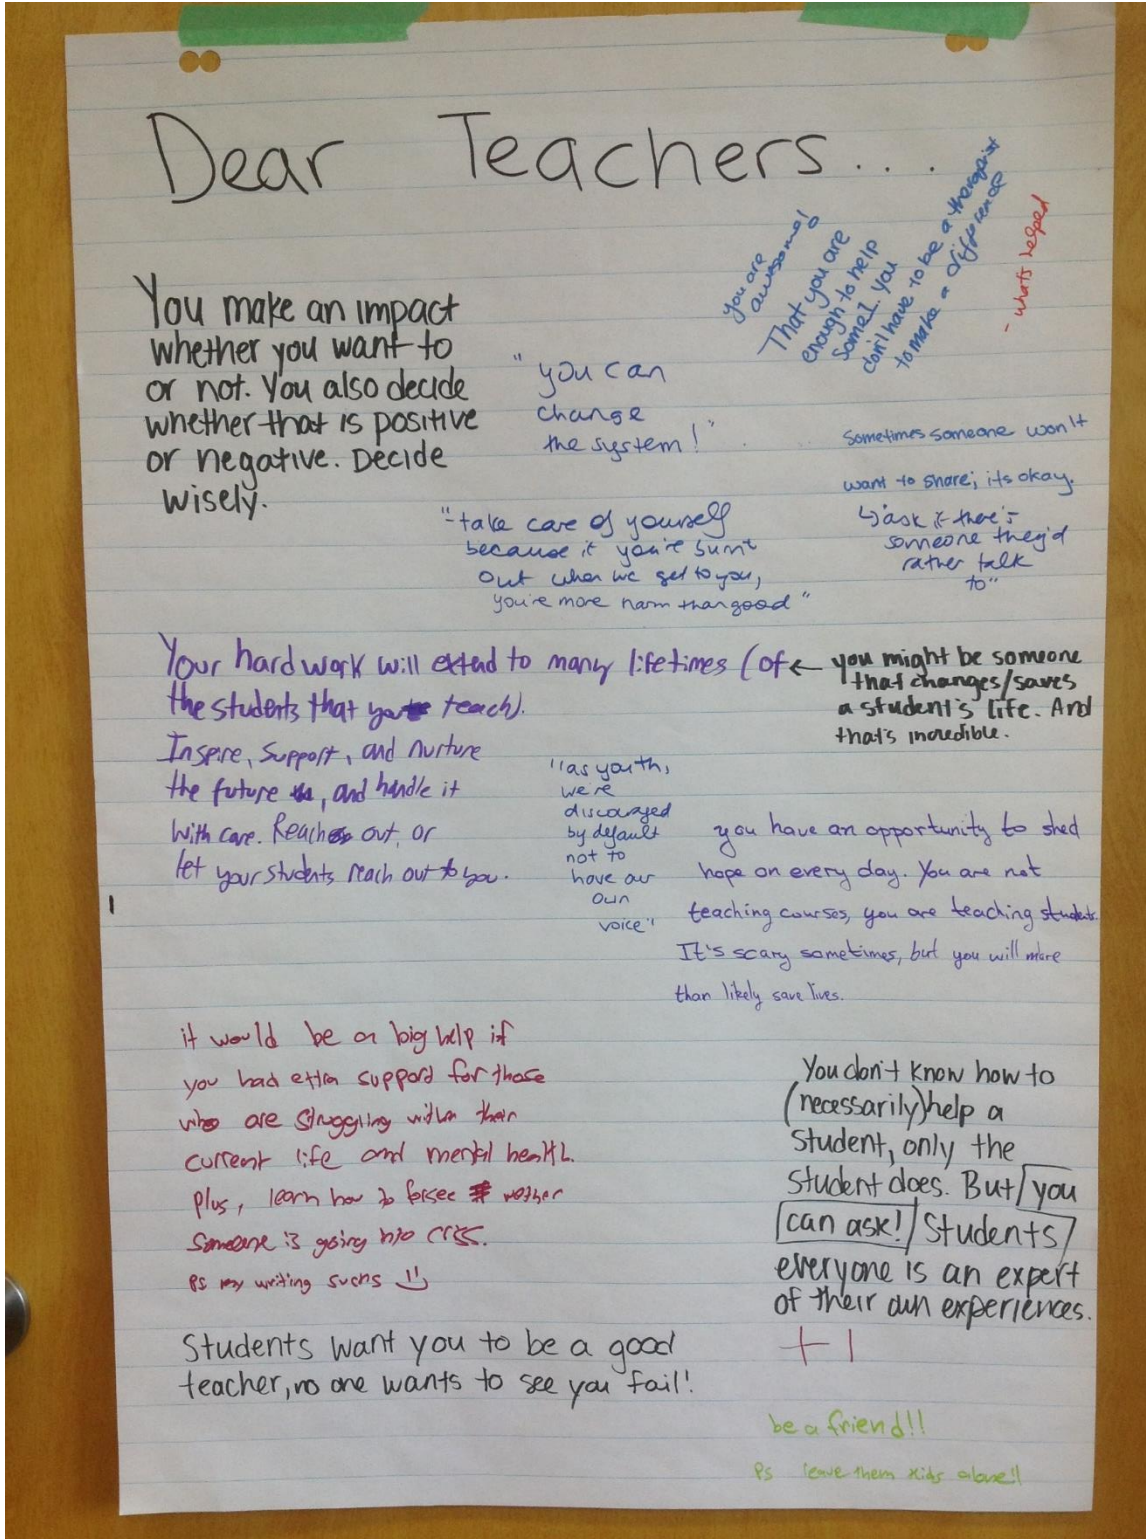 Dear Teachers...
you are
awesome!
That you are
enough to help
some1. you
don't have to be a therapist
to make a difference
- whats helped
You make an impact
whether you want to
or not. You also decide
whether that is positive
or negative. Decide
wisely.
"you can
change
the system!"
Sometimes someone won't
want to share; its okay.
↳ ask if there's
someone they'd
rather talk
to"
"take care of yourself
because if you're burnt
out when we get to you,
you're more harm than good"
Your hard work will extend to many lifetimes (of
the students that you teach).
Inspire, support, and nurture
the future, and handle it
with care. Reach out, or
let your students reach out to you.
← you might be someone
that changes/saves
a student's life. And
that's incredible.
"as youth,
we're
discouraged
by default
not to
have our
own
voice"
you have an opportunity to shed
hope on every day. You are not
teaching courses, you are teaching students.
It's scary sometimes, but you will more
than likely save lives.
it would be a big help if
you had extra support for those
who are struggling within their
current life and mental health.
plus, learn how to forsee wether
someone is going into
Ps my writing sucks
You don't know how to
(necessarily) help a
student, only the
student does. But you
can ask! Students
everyone is an expert
of their own experiences.
+1
Students want you to be a good
teacher, no one wants to see you fail!
be a friend!!
Ps leave them kids alone!!